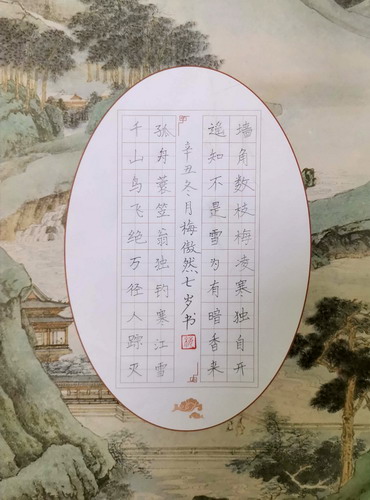 墙角数枝梅凌寒独自开
遥知不是雪为有暗香来
辛丑冬月梅傲然七岁书
孤舟蓑笠翁独钓寒江雪
千山鸟飞绝万径人踪灭